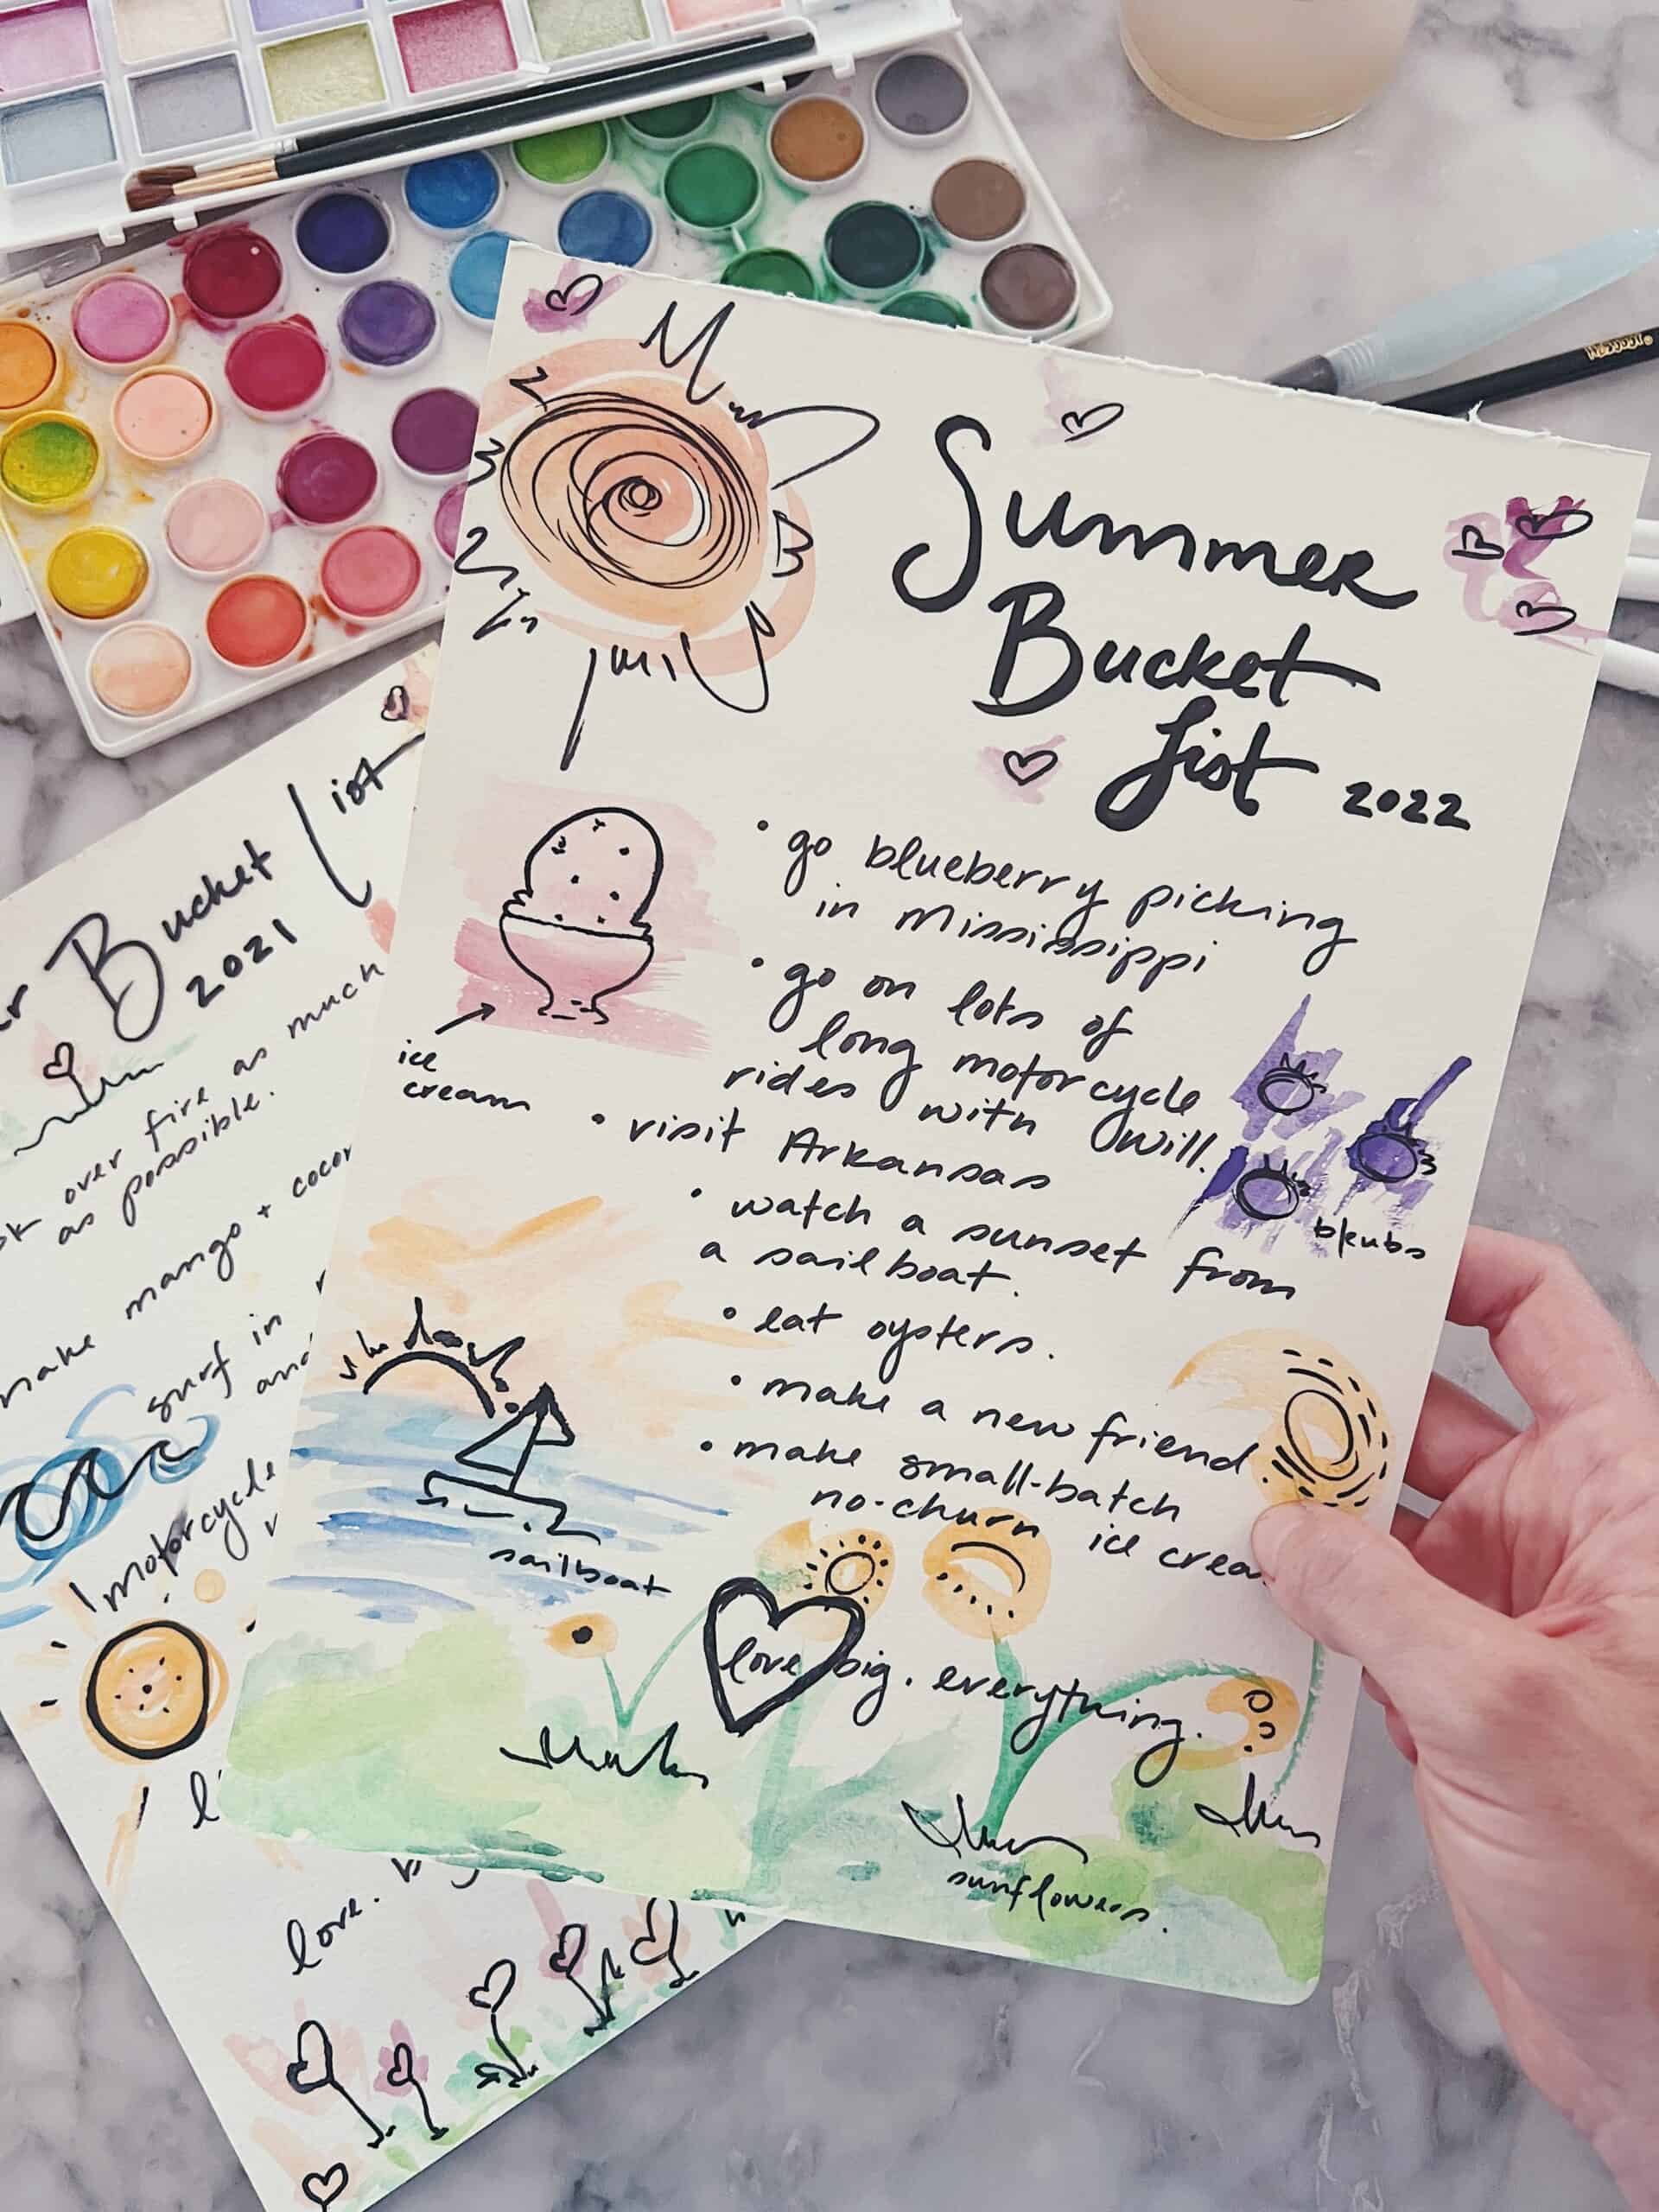 Summer
Bucket
List 2022
• go blueberry picking
in Mississippi
• go on lots of
long motorcycle
rides with Will.
• visit Arkansas
• watch a sunset from
a sailboat.
• eat oysters.
• make a new friend.
• make small-batch
no-churn ice crea
ice
cream
sailboat
love big. everything.
sunflowers.
Bucket list
2021
over fire as much
as possible.
make mango +
surf in
and
motorcycle
love.